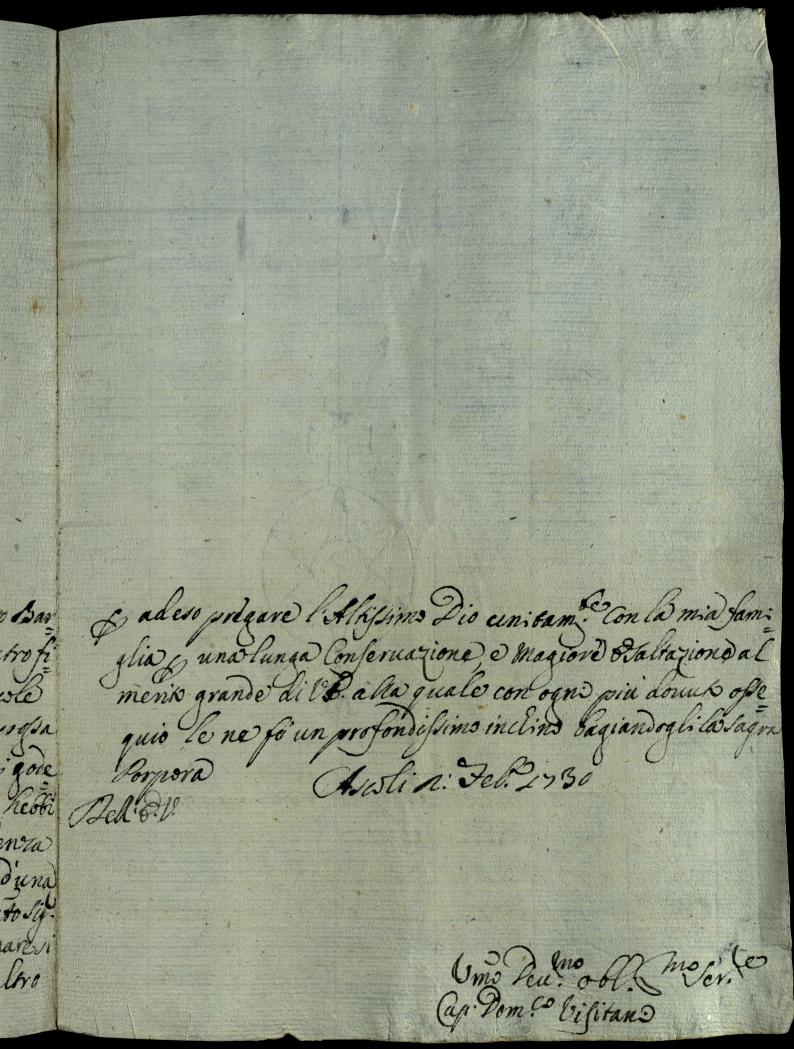 o Bar=
tro fi=
cole
rossa
i gode=
hebbi
enza
d'una
to Sig.
nar si
ltro
ꝑ adeso pregare l'Altissimo Dio unitam.te con la mia fami=
glia ꝑ una lunga Conseruazione, e Magiore Esaltazione al
merito grande di V. E. alla quale con ogni più douuto osse=
quio le ne fò un profondissimo inchino bagiandogli la Sagra
Porpora Ascoli p.: Feb.o 1730
Dell' E. V.
Vmo Deu.mo obl.mo Ser.te
Cap. Dom.co Visitano